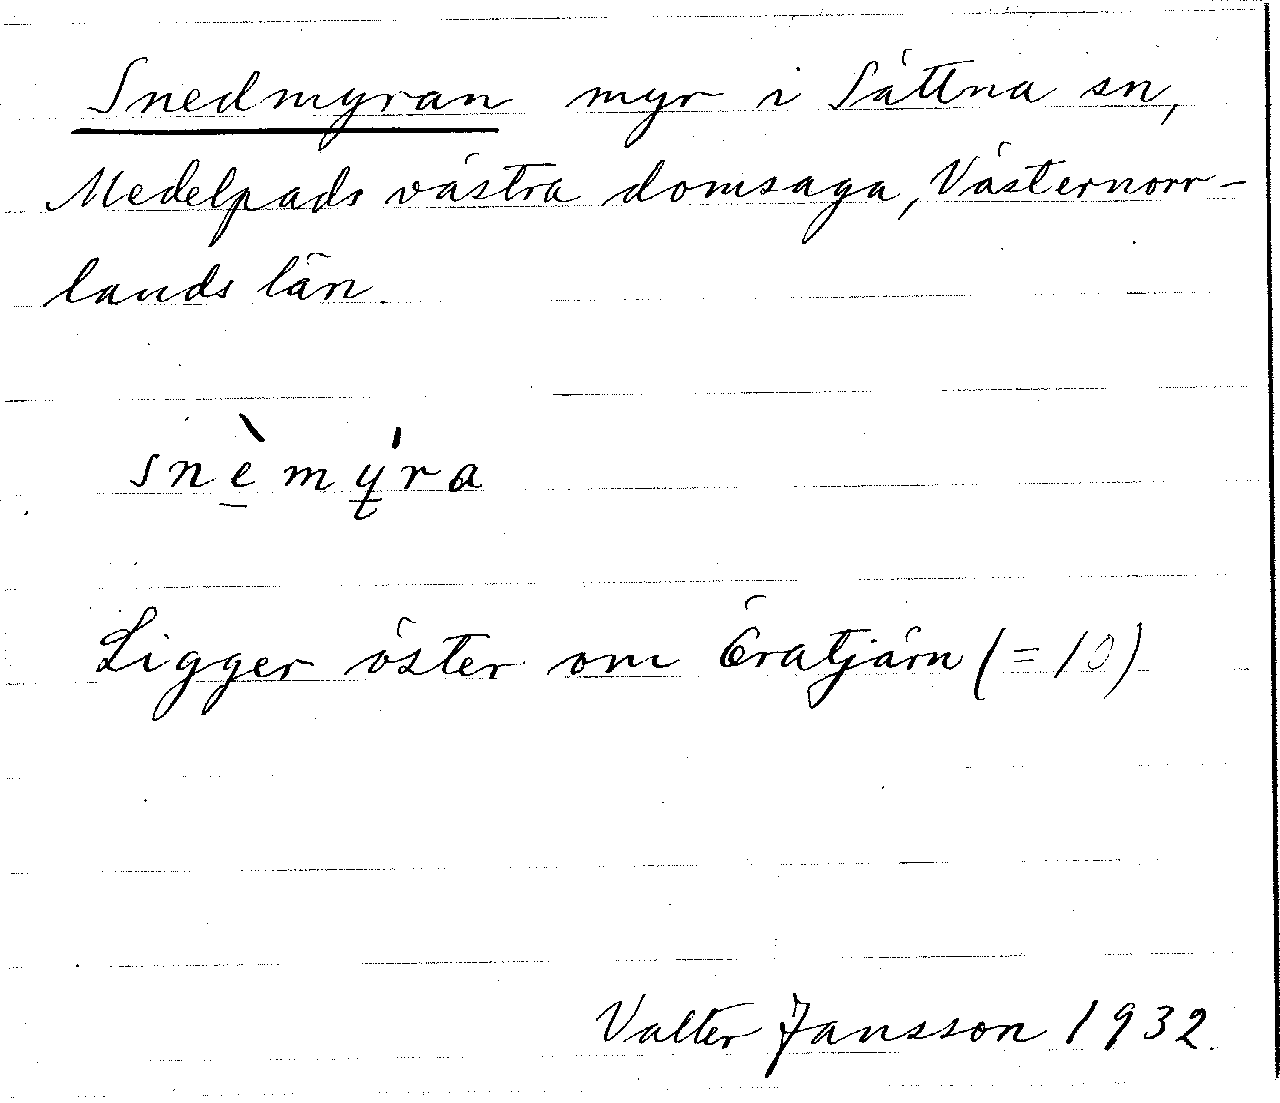 Snedmyran myr i Sättna sn,
Medelpads västra domsaga, Västernorr-
lands län
snè̱mý̱ra
Ligger öster om Öratjärn (= 10)
Valter Jansson 1932.